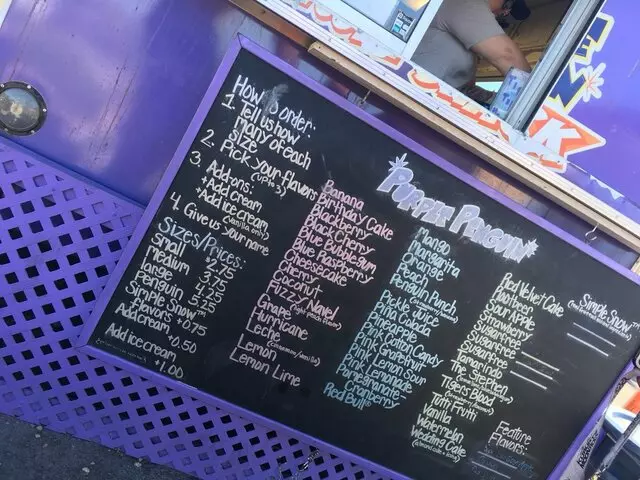 How to order:
1. Tell us how
many of each
size
2. Pick your flavors
(up to 3)
3. Add-ons:
+Add Cream
+Add Ice Cream
(vanilla only)
4. Give us your name
Sizes/Prices:
Small $2.75
Medium 3.75
Large 4.25
Penguin 5.25
Simple Snow™
flavors +0.75
Add cream +0.50
Add ice cream
+1.00
PURPLE PENGUIN
Banana
Birthday Cake
Blackberry
Black Cherry
Blue Bubblegum
Blue Raspberry
Cheesecake
Cherry
Coconut
Fizzy Navel
Grape
Hurricane
Lectric
Lemon
Lemon Lime
Mango
Margarita
Orange
Peach
Penguin Punch
Pickle Juice
Pina Colada
Pineapple
Pink Cotton Candy
Pink Grapefruit
Pink Lemonade
Pink Lemon Sour
Pomegranate-
Cranberry
Red Bull®
Red Velvet Cake
Rootbeer
Sour Apple
Strawberry
Sugarfree
Sugarfree
Sugarfree
Tamarindo
The Stephen
Tigers Blood
Tutti Frutti
Vanilla
Watermelon
Wedding Cake
(almond cake + icing)
Simple Snow™
Feature
Flavors: